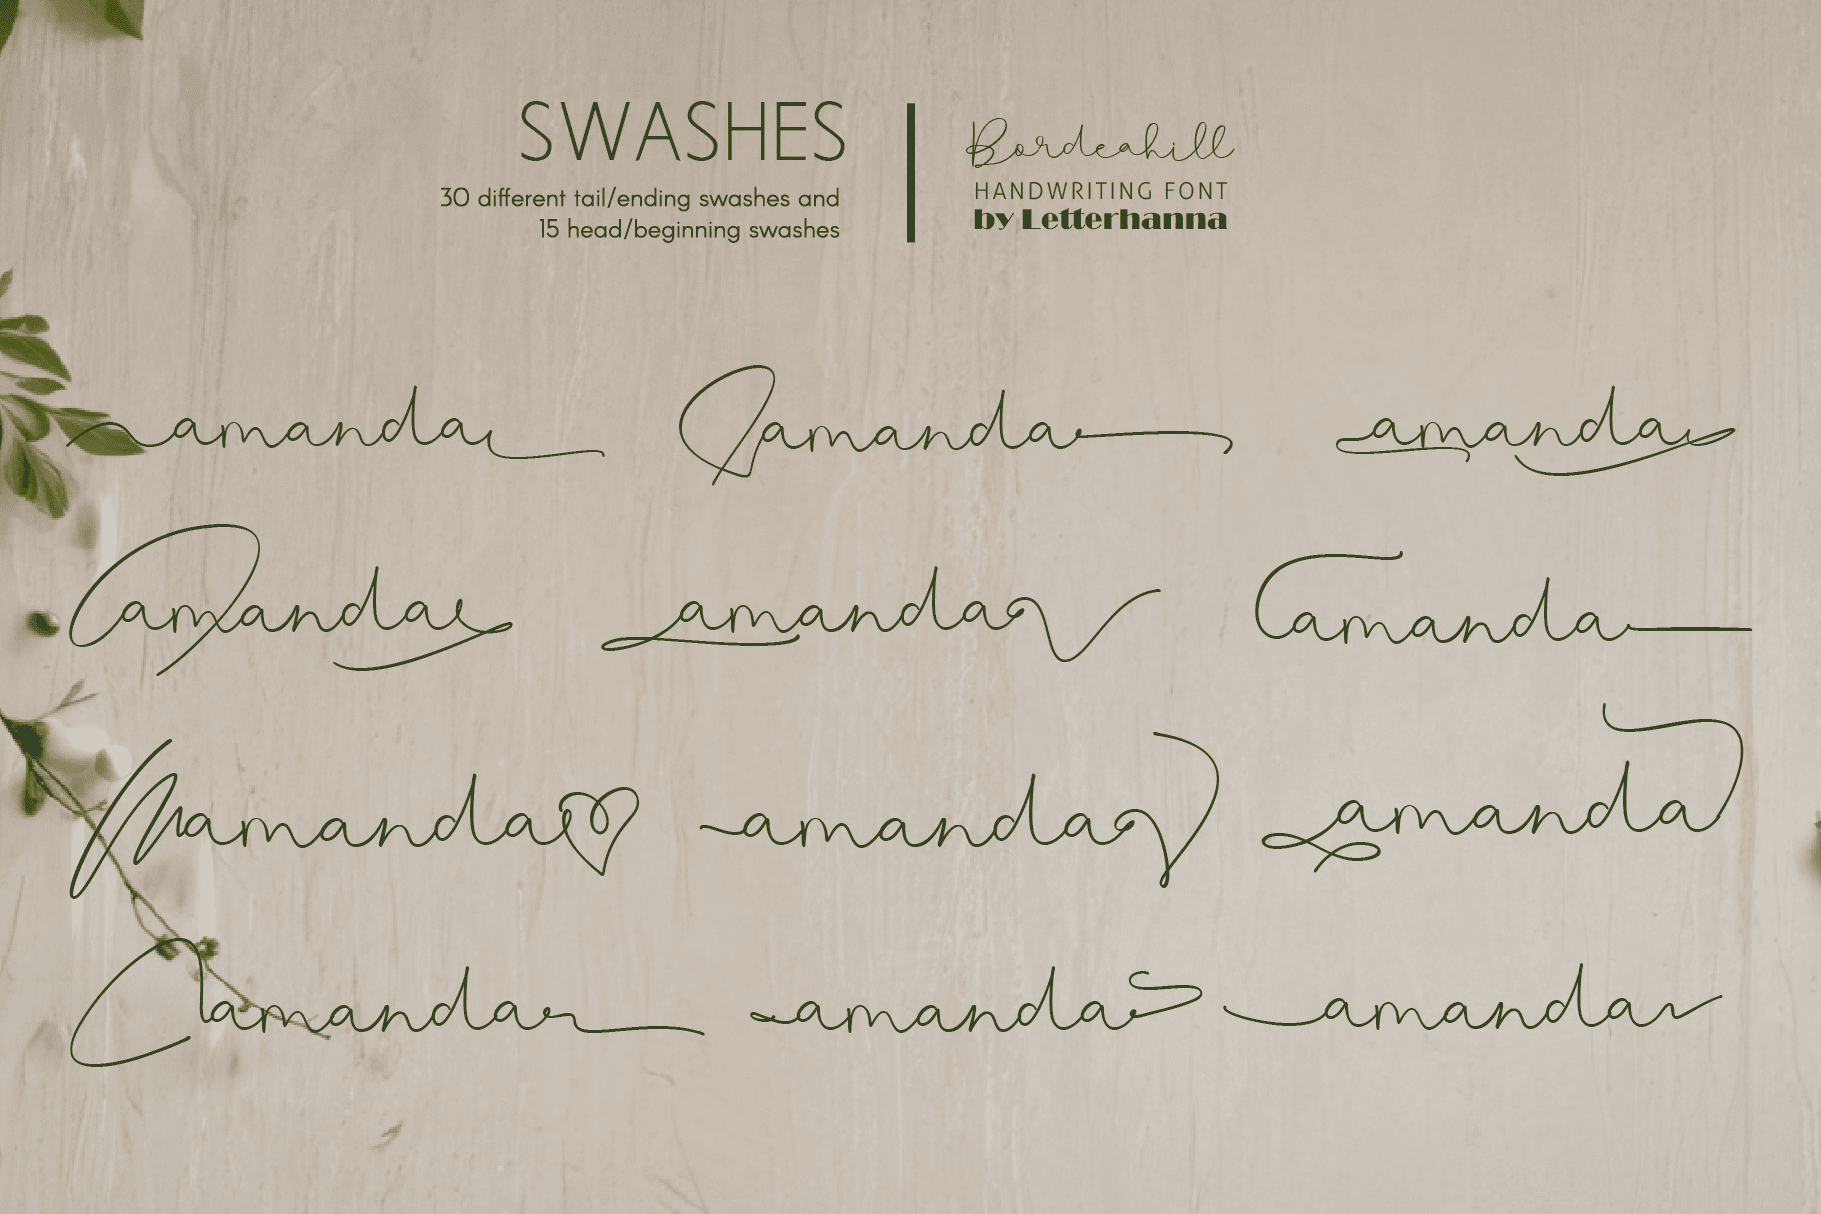 SWASHES
30 different tail/ending swashes and
15 head/beginning swashes
Bordeahill
HANDWRITING FONT
by Letterhanna
amanda amanda amanda
amanda amanda amanda
amanda amanda amanda
amanda amanda amanda